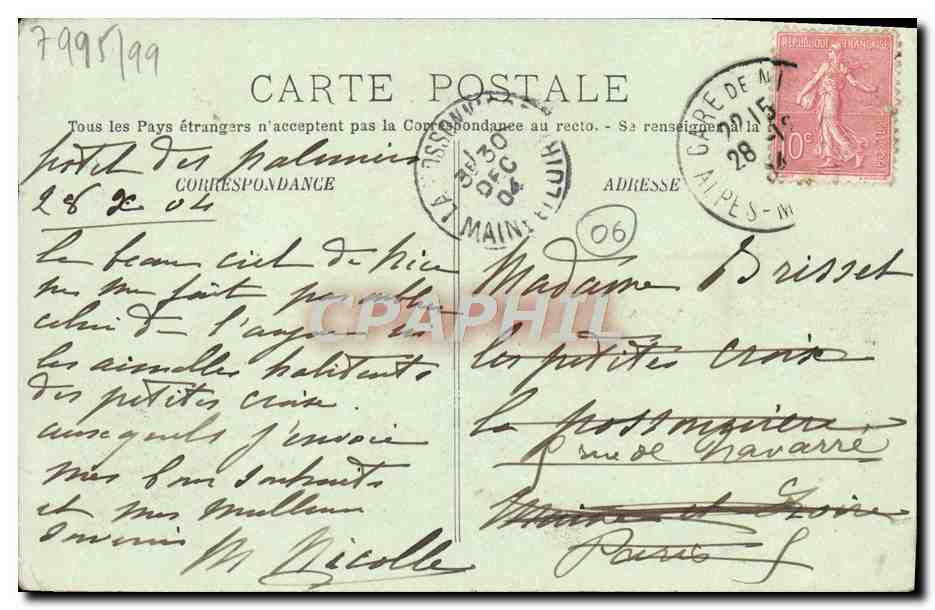 7995/99
CARTE POSTALE
Tous les Pays étrangers n'acceptent pas la Correspondance au recto. - Se renseigner à la
CORRESPONDANCE
ADRESSE
REPUBLIQUE FRANÇAISE
10c
POSTES
GARE DE NI
22.15
28
ALPES-M
LA POSSONN
30
DEC
04
MAINE
06
hotel des palmiers
28 X 04
Le beau ciel de Nice
ne me fait pas oublier
celui de l'anjou ni
les aimables habitants
des petites croix
auxquels j'envoie
mes bons souhaits
et mes meilleurs
souvenirs
M Nicolle
Madame Brisset
les petites croix
la possonnière
rue de Navarre
Maine et Loire
Paris 5
CPAPHIL